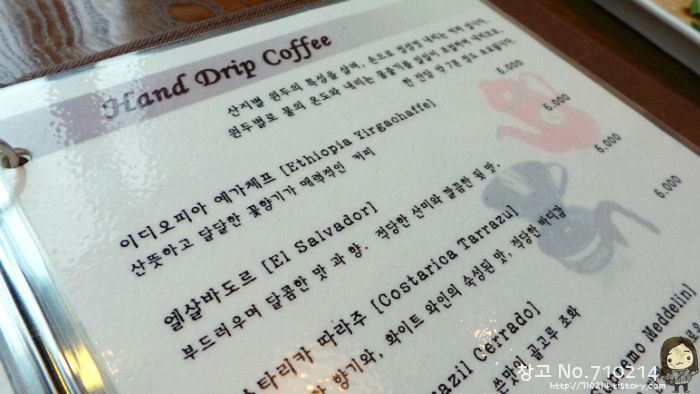 Hand Drip Coffee
산지별 원두의 특성을 살려, 손으로 정성껏 내리는 커피 입니다.
원두별로 물의 온도와 내리는 물줄기를 알맞게 조절하여 내리므로,
한 잔당 약 7분 정도 소요됩니다.
이디오피아 예가체프 [Ethiopia Yirgachaffe] 6.000
산뜻하고 달달한 꽃향기가 매력적인 커피
엘살바도르 [El Salvador] 6.000
부드러우며 달콤한 맛과 향. 적당한 산미와 깔끔한 뒷 맛.
스타리카 따라주 [Costarica Tarrazu] 6.000
향기와, 화이트 와인의 숙성된 맛, 적당한 바디감
azil Cerrado]
쓴맛의 골고루 조화
Meddelin]
창고 No.710214
http://710214.tistory.com